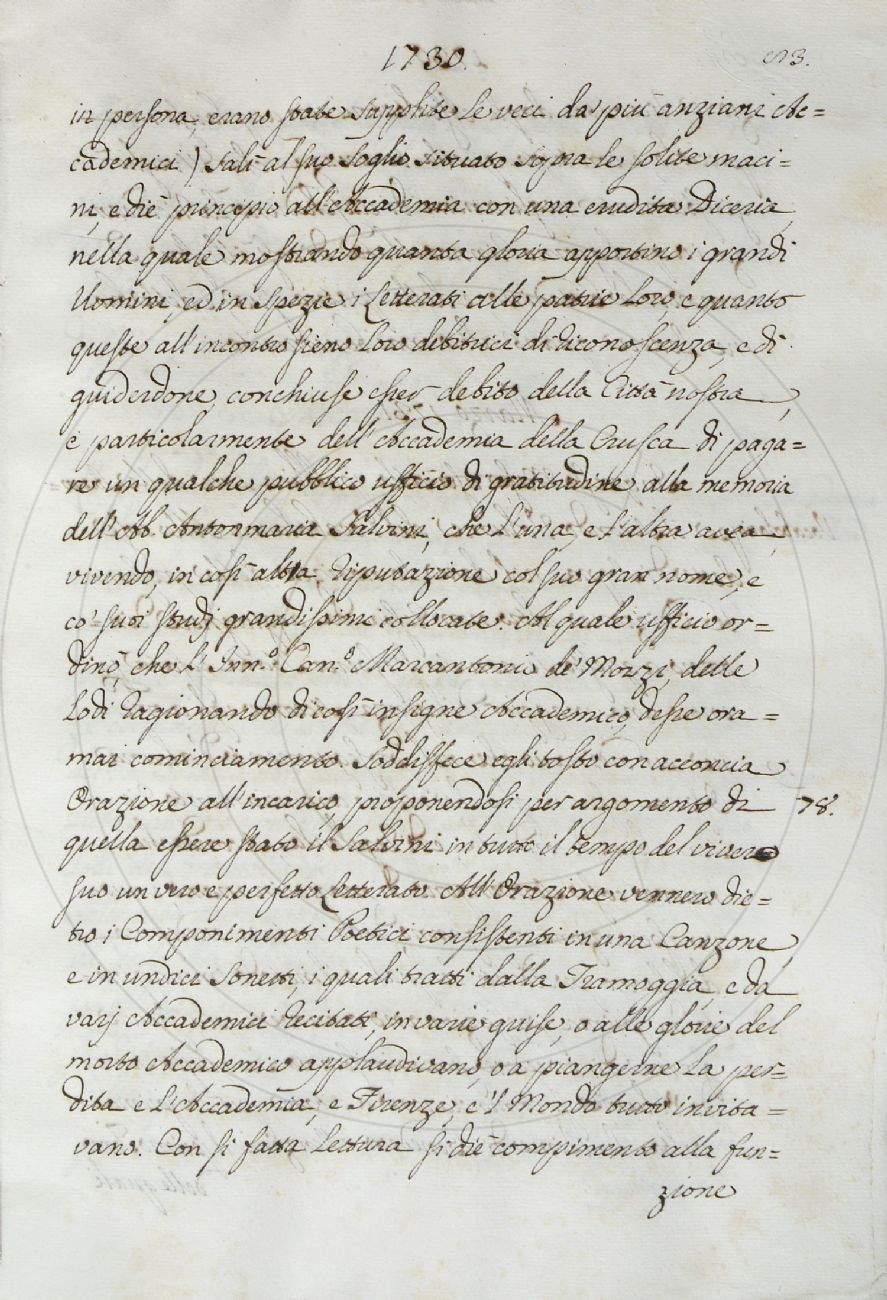 1730. 93.
in persona, erano state supplite le veci da' più anziani Ac=
cademici) salì al suo soglio situato sopra le solite maci=
ni, e diè principio all'Accademia con una erudita Diceria,
nella quale mostrando quanta gloria apportino i grandi
Uomini, ed in spezie i Letterati alle patrie loro, e quanto
queste all'incontro sieno loro debitrici di riconoscenza, e di
guiderdone, conchiuse esser debito della Città nostra,
e particolarmente dell'Accademia della Crusca di paga=
re un qualche pubblico ufficio di gratitudine alla memoria
dell'Ab. Antonmaria Salvini, che l'una, e l'altra avea,
vivendo, in così alta riputazione col suo gran nome, e
co' suoi studj grandissimi collocate. Al quale ufficio or=
dinò, che l'Inn.º Can.º Marcantonio de' Mozzi, delle
lodi ragionando di così insigne Accademico, desse ora=
mai cominciamento. Soddisfece egli tosto con acconcia
Orazione all'incarico, proponendosi per argomento di 78.
quella essere stato il Salvini in tutto il tempo del viver
suo un vero e perfetto Letterato. All'Orazione vennero die=
tro i Componimenti Poetici consistenti in una Canzone,
e in undici Sonetti, i quali tratti dalla Tramoggia, e da
varj Accademici recitati, in varie guise, o alle glorie del
morto Accademico applaudivano, o a piangerne la per=
dita e l'Accademia, e Firenze, e 'l Mondo tutto invita=
vano. Con sì fatta Lettura si diè compimento alla fun=
zione